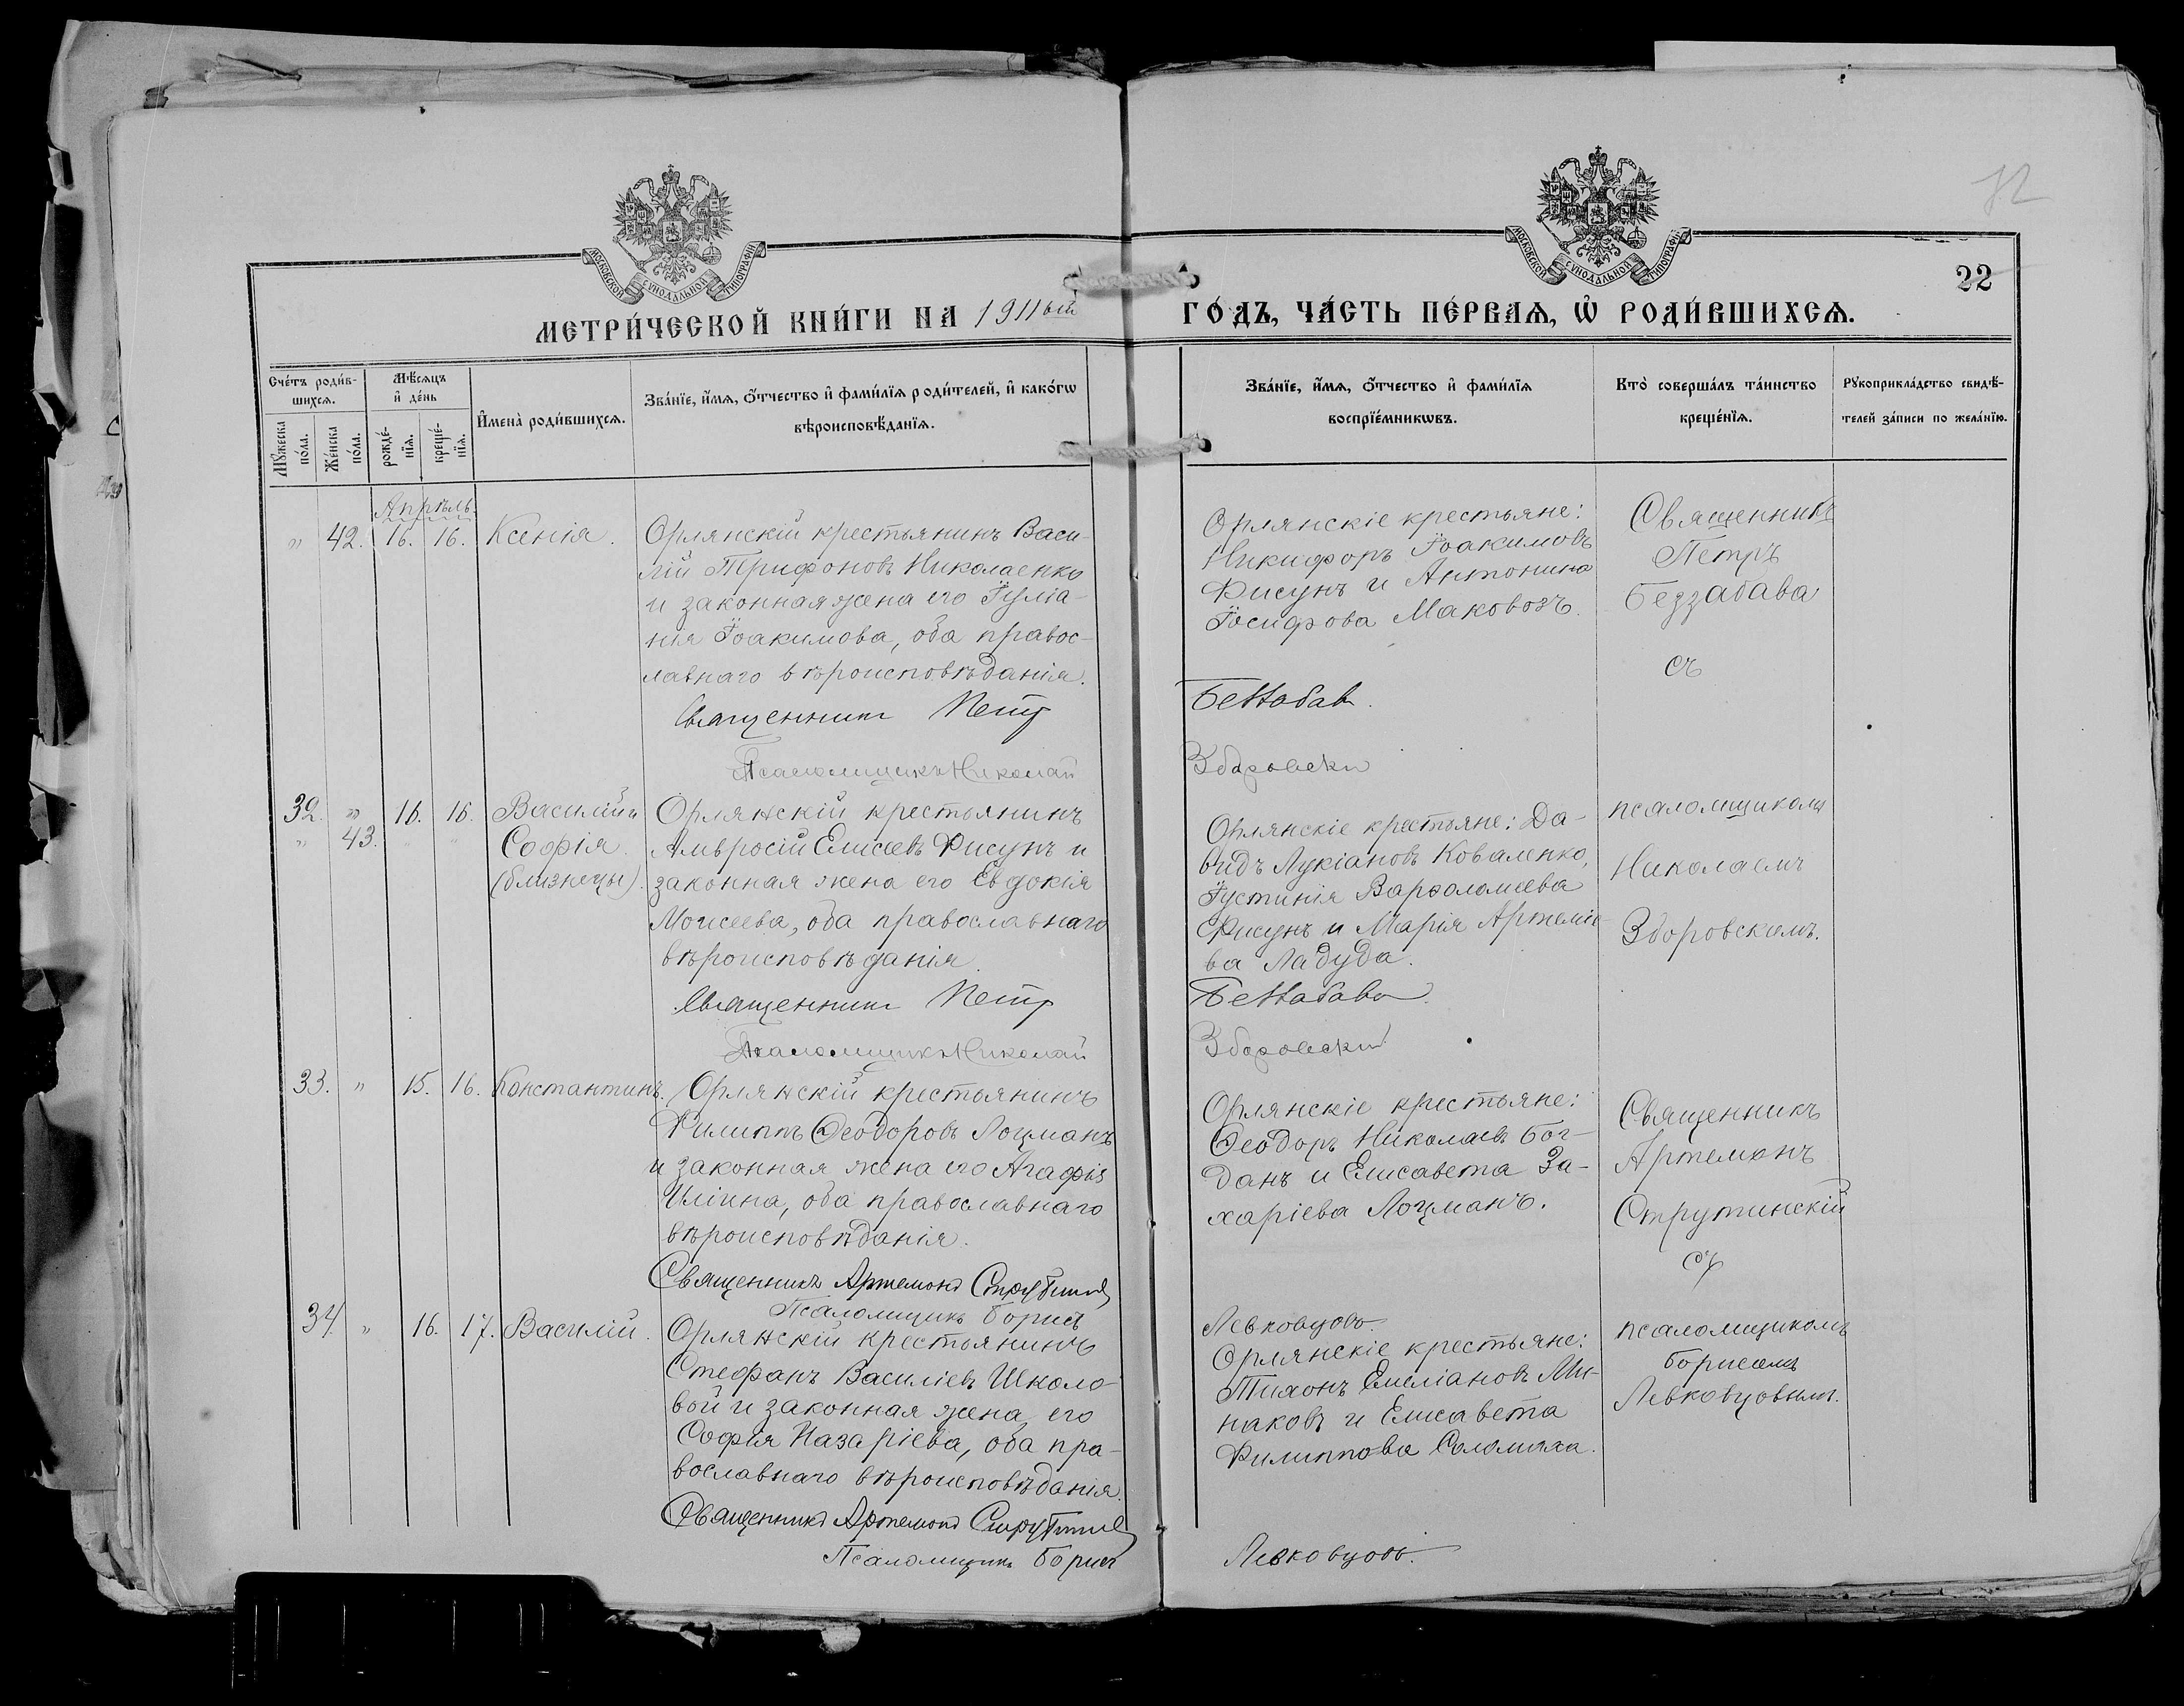 МОСКОВСКОЙ СѴНОДАЛЬНОЙ ТИПОГРАФІИ
МОСКОВСКОЙ СѴНОДАЛЬНОЙ ТИПОГРАФІИ
22
МЕТРИ́ЧЕСКОЙ КНИ́ГИ НА 1911ый ГО́ДЪ, ЧА́СТЬ ПЕ́РВАѦ, Ѡ҆ РОДИ́ВШИХСѦ.
Сче́тъ роди́в-
шихсѧ.
Мꙋ́жеска
по́ла.
Же́нска
по́ла.
Мѣ́сѧцъ
и҆ де́нь
рожде́-
нїѧ.
креще́-
нїѧ.
И҆мена̀ роди́вшихсѧ.
Зва́нїе, и҆́мѧ, ѻ҆́тчество и҆ фами́лїѧ роди́телей, и҆ како́гѡ
вѣроисповѣ́данїѧ.
Зва́нїе, и҆́мѧ, ѻ҆́тчество и҆ фами́лїѧ
воспрїе́мникѡвъ.
Кто̀ соверша́лъ та́инство
креще́нїѧ.
Рꙋкоприкла́дство свидѣ́-
телей за́писи по жела́нїю.
Апрѣль.
" 42. 16. 16. Ксенія.
Орлянскій крестьянинъ Васи-
лій Трифоновъ Николаенко
и законная жена его Іуліа-
нія Іоакимова, оба правос-
лавнаго вѣроисповѣданія.
Священникъ Петръ
Псаломщикъ Николай
Орлянскіе крестьяне:
Никифоръ Іоакимовъ
Фисунъ и Антонина
Іосифова Маковозъ.
Беззабава
Зборовскій
Священникъ
Петръ
Беззабава
съ
32. " 16. 16. Василій и
" 43. " " Софія
(близнецы).
Орлянскій крестьянинъ
Амвросій Елисеевъ Фисунъ и
законная жена его Евдокія
Моисеева, оба православнаго
вѣроисповѣданія.
Священникъ Петръ
Псаломщикъ Николай
Орлянскіе крестьяне: Да-
видъ Лукіановъ Коваленко,
Іустинія Варѳоломеева
Фисунъ и Марія Артеміе-
ва Ладуда.
Беззабава
Зборовскій
псаломщикомъ
Николаемъ
Зборовскимъ.
33. " 15. 16. Константинъ.
Орлянскій крестьянинъ
Филиппъ Ѳеодоровъ Лоцманъ
и законная жена его Агафія
Иліина, оба православнаго
вѣроисповѣданія.
Священникъ Артемонъ Струтинскій
Псаломщикъ Борисъ
Орлянскіе крестьяне:
Ѳеодоръ Николаевъ Бог-
данъ и Елисавета За-
харіева Лоцманъ.
Левковцовъ.
Священникъ
Артемонъ
Струтинскій
съ
34. " 16. 17. Василій.
Орлянскій крестьянинъ
Стефанъ Василіевъ Школо-
вой и законная жена его
Софія Назаріева, оба пра-
вославнаго вѣроисповѣданія.
Священникъ Артемонъ Струтинскій
Псаломщикъ Борисъ
Орлянскіе крестьяне:
Тихонъ Емеліановъ Ми-
наковъ и Елисавета
Филиппова Соломаха.
Левковцовъ.
псаломщикомъ
Борисомъ
Левковцовымъ.